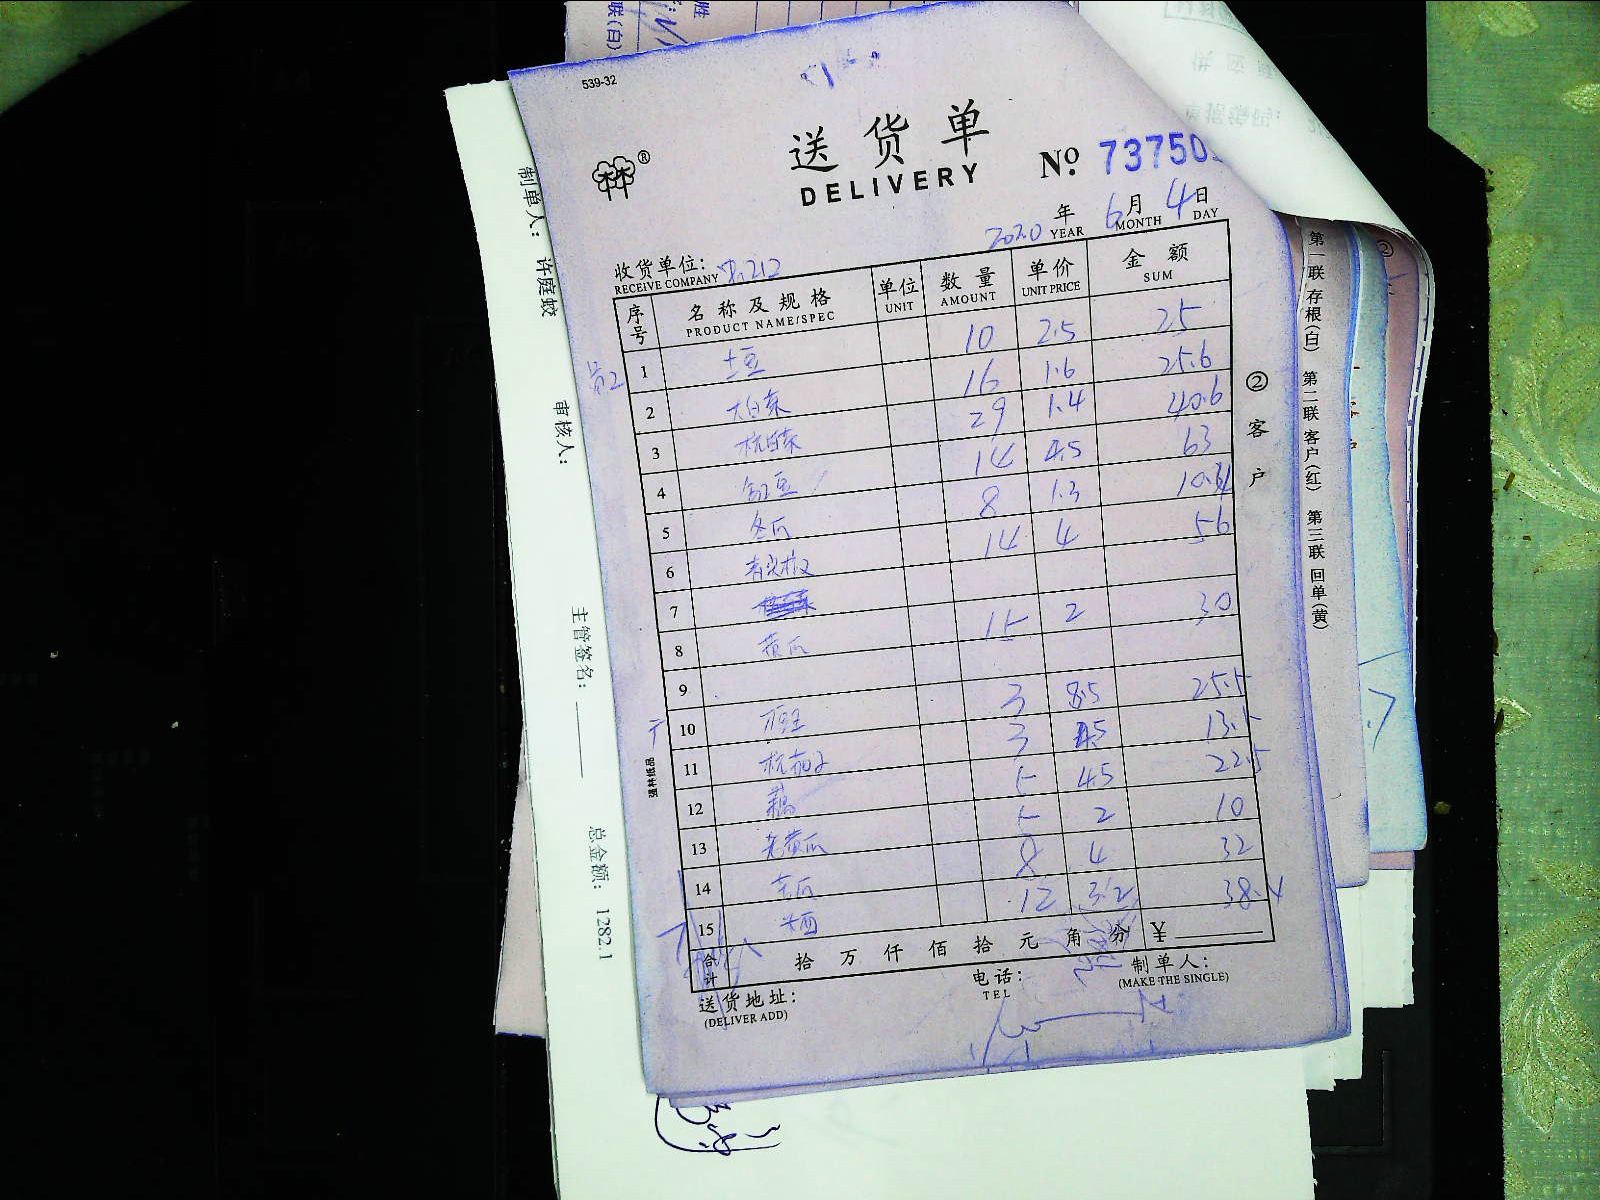 539-32
送货单
DELIVERY
№ 73750
2020 年 YEAR 6 月 MONTH 4 日 DAY
收货单位:
RECEIVE COMPANY
序号 名称及规格 PRODUCT NAME/SPEC 单位 UNIT 数量 AMOUNT 单价 UNIT PRICE 金额 SUM
1 土豆 10 2.5 25
2 大白菜 16 1.6 25.6
3 杭白菜 29 1.4 40.6
4 豆 14 4.5 63
5 冬瓜 8 1.3 10.4
6 青尖椒 14 4 56
7
8 黄瓜 15 2 30
9
10 3 8.5 25.5
11 杭茄子 3 4.5 13.5
12 藕 5 4.5 22.5
13 老黄瓜 5 2 10
14 苦瓜 8 4 32
15 米酒 12 3.2 38.4
合计 拾 万 仟 佰 拾 元 角 分 ¥
送货地址:
(DELIVER ADD)
电话:
TEL
制单人:
(MAKE THE SINGLE)
强林纸品
②客户
第一联 存根(白) 第二联 客户(红) 第三联 回单(黄)
制单人: 许庭蛟
审核人:
主管签名:
总金额: 1282.1
联(白)